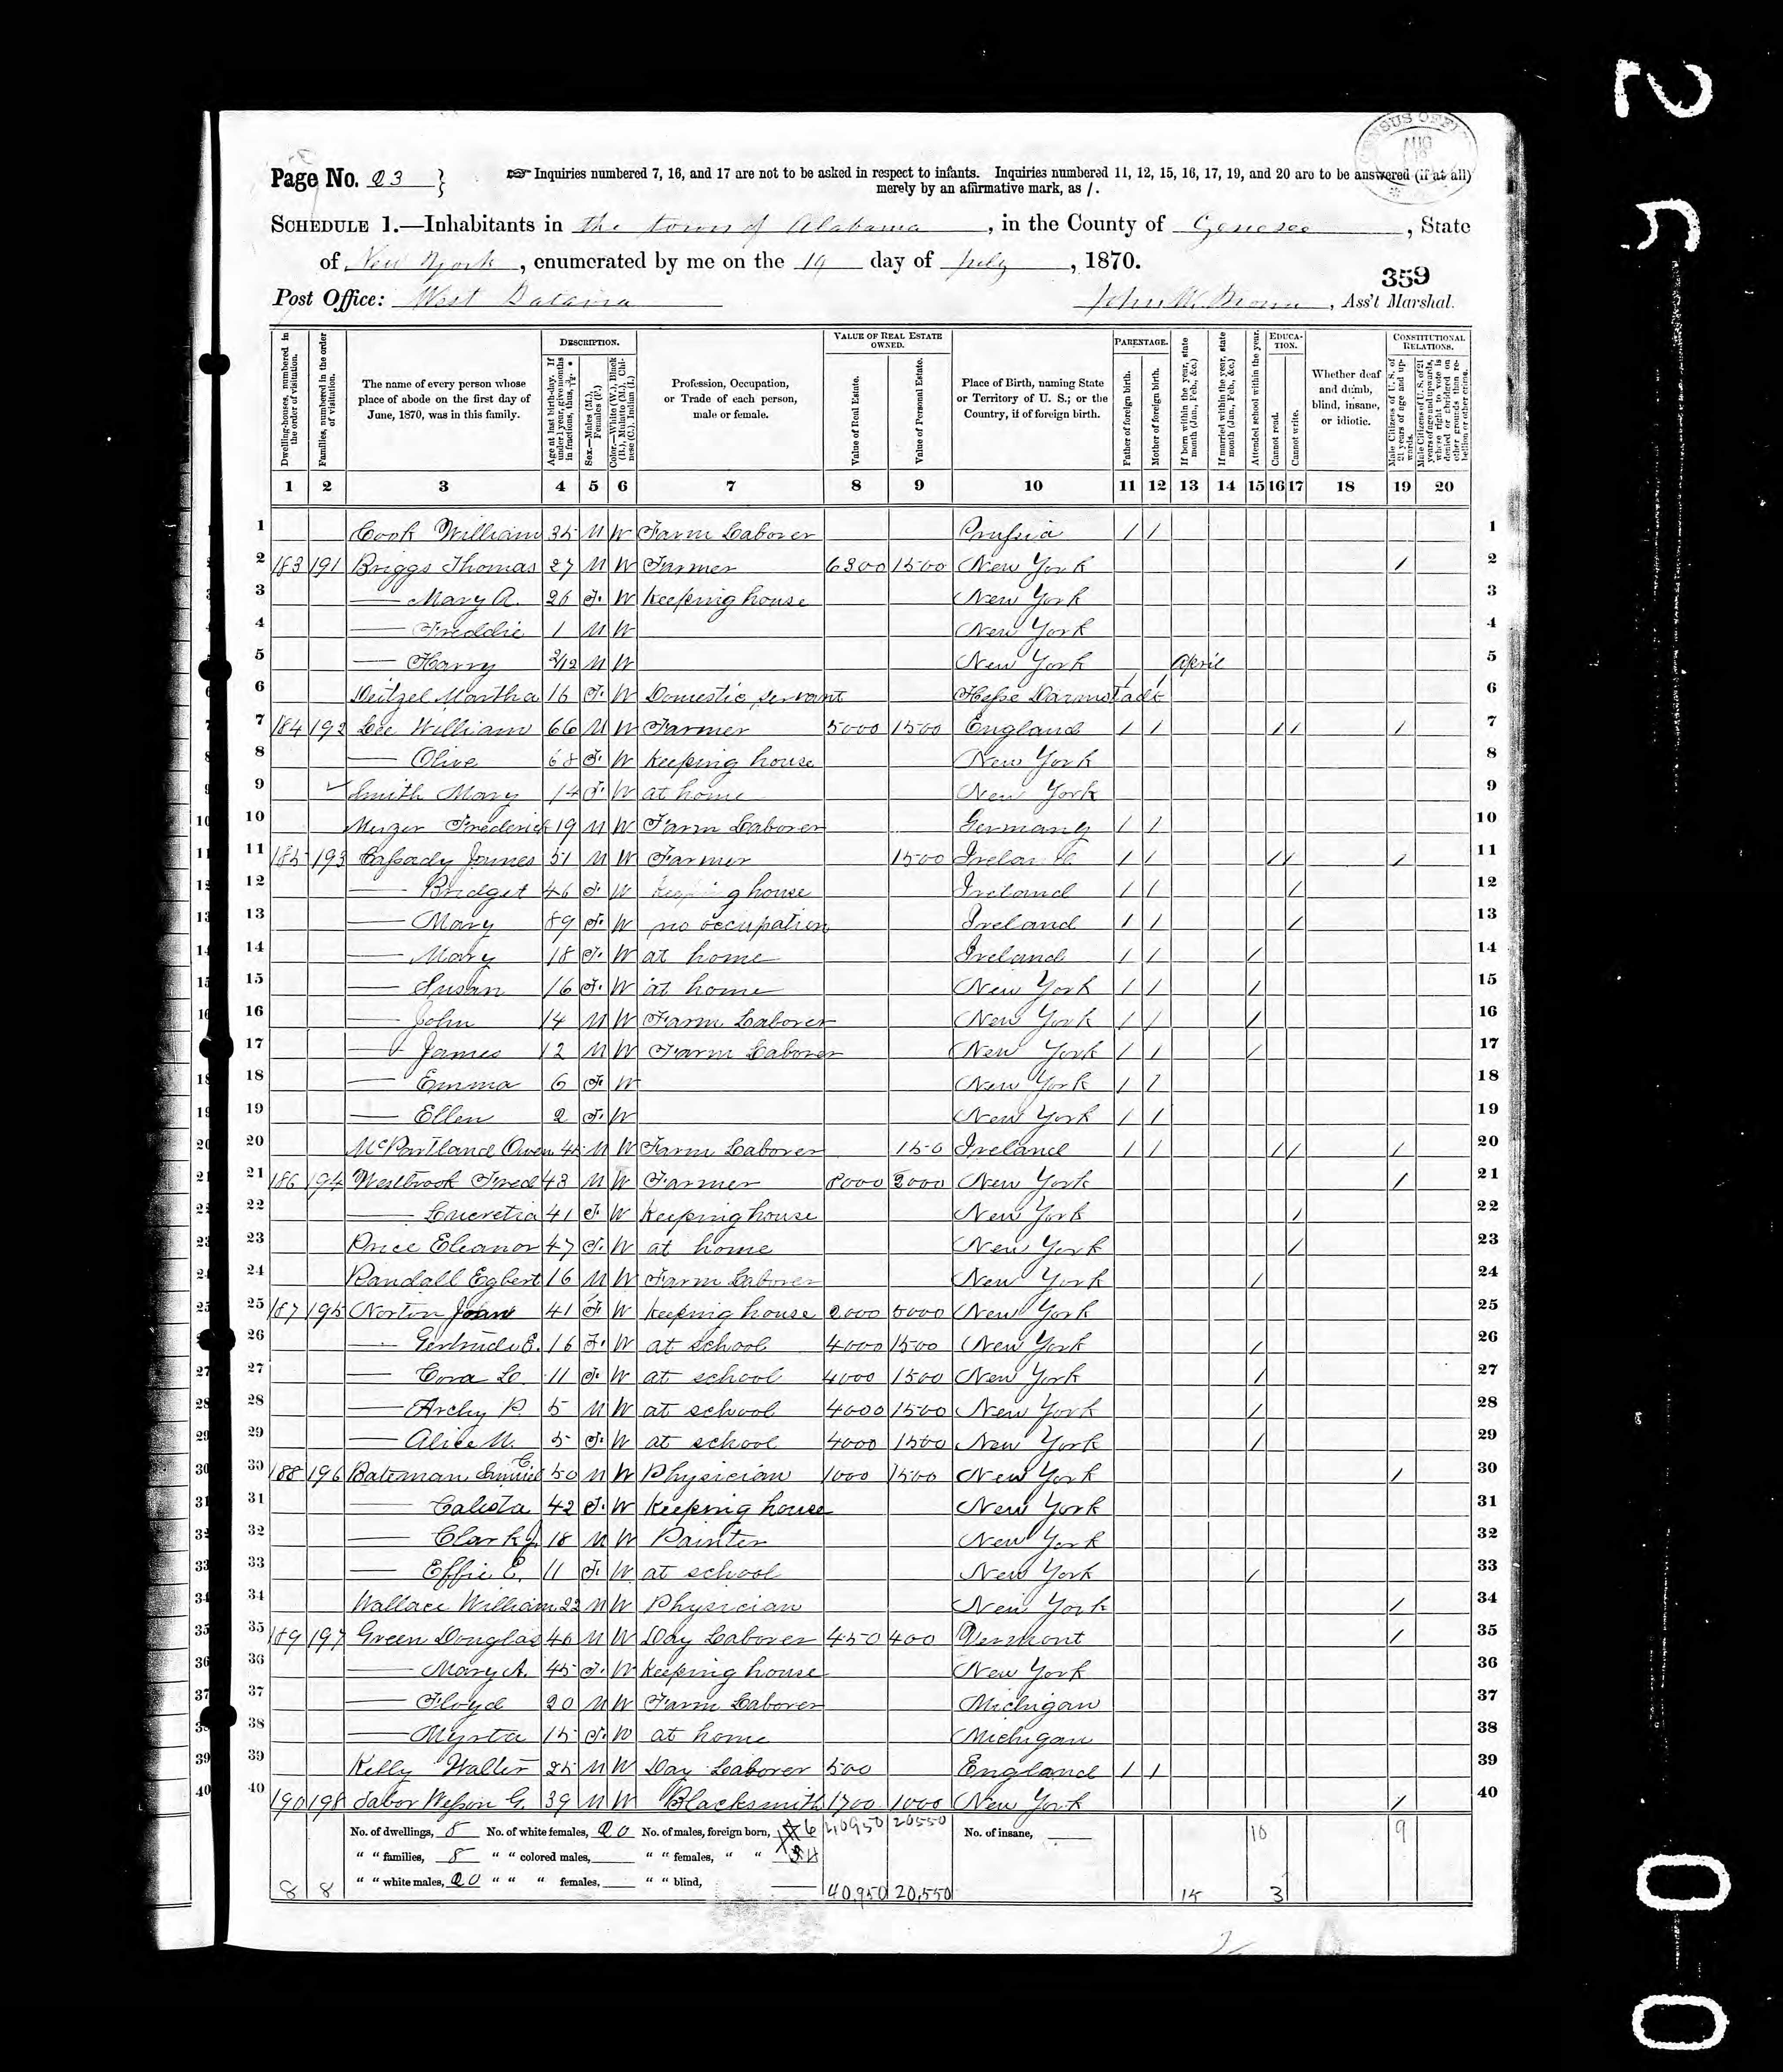 Page No. 23
Inquiries numbered 7, 16, and 17 are not to be asked in respect to infants. Inquiries numbered 11, 12, 15, 16, 17, 19, and 20 are to be answered (if at all) merely by an affirmative mark, as /.
CENSUS OFFICE AUG
SCHEDULE 1.—Inhabitants in the town of Alabama, in the County of Genesee, State
of New York, enumerated by me on the 19 day of July, 1870.
359
Post Office: West Batavia John W. Brown, Ass't Marshal.
Dwelling-houses, numbered in the order of visitation.
Families, numbered in the order of visitation.
The name of every person whose place of abode on the first day of June, 1870, was in this family.
DESCRIPTION.
Age at last birth-day. If under 1 year, give months in fractions, thus, 3/12.
Sex.—Males (M.), Females (F.)
Color.—White (W.), Black (B.), Mulatto (M.), Chinese (C.), Indian (I.)
Profession, Occupation, or Trade of each person, male or female.
VALUE OF REAL ESTATE OWNED.
Value of Real Estate.
Value of Personal Estate.
Place of Birth, naming State or Territory of U. S.; or the Country, if of foreign birth.
PARENTAGE.
Father of foreign birth.
Mother of foreign birth.
If born within the year, state month (Jan., Feb., &c.)
If married within the year, state month (Jan., Feb., &c.)
Attended school within the year.
EDUCATION.
Cannot read.
Cannot write.
Whether deaf and dumb, blind, insane, or idiotic.
CONSTITUTIONAL RELATIONS.
Male Citizens of U. S. of 21 years of age and upwards.
Male Citizens of U. S. of 21 years of age and upwards, whose right to vote is denied or abridged on other grounds than rebellion or other crime.
1 2 3 4 5 6 7 8 9 10 11 12 13 14 15 16 17 18 19 20
1 Cook William 35 M W Farm Laborer Prussia / / 1
2 183 191 Briggs Thomas 27 M W Farmer 6300 1500 New York / 2
3 — Mary A. 26 F. W Keeping house New York 3
4 — Freddie 1 M W New York 4
5 — Harry 2/12 M W New York April 5
6 Deitzel Martha 16 F. W Domestic servant Hesse Darmstadt / / 6
7 184 192 Lee William 66 M W Farmer 5000 1500 England / / / / / 7
8 — Olive 68 F. W Keeping house New York 8
9 Smith Mary 14 F. W at home New York 9
10 Frederick 19 M W Farm Laborer Germany / / 10
11 185 193 Cassady James 51 M W Farmer 1500 Ireland / / / / / 11
12 — Bridget 46 F. W Keeping house Ireland / / / 12
13 — Mary 89 F. W no occupation Ireland / / / 13
14 — Mary 18 F. W at home Ireland / / / 14
15 — Susan 16 F. W at home New York / / / 15
16 — John 14 M W Farm Laborer New York / / / 16
17 — James 12 M W Farm Laborer New York / / / 17
18 — Emma 6 F. W New York / / 18
19 — Ellen 2 F. W New York / / 19
20 McPartland Owen 45 M W Farm Laborer 150 Ireland / / / / / 20
21 186 194 Westbrook Fred 43 M W Farmer 8000 2000 New York / 21
22 — Lucretia 41 F. W Keeping house New York / 22
23 Price Eleanor 47 F. W at home New York / 23
24 Randall Egbert 16 M W Farm Laborer New York / 24
25 187 195 Norton Joan 41 F W Keeping house 2000 5000 New York 25
26 — Gertrude E. 16 F. W at school 4000 1500 New York / 26
27 — Cora L. 11 F. W at school 4000 1500 New York / 27
28 — Archy P. 5 M W at school 4000 1500 New York / 28
29 — Alice M. 5 F. W at school 4000 1500 New York / 29
30 188 196 Bateman Samuel C. 50 M W Physician 1000 1500 New York / 30
31 — Calista 42 F. W Keeping house New York 31
32 — Clark J. 18 M W Painter New York 32
33 — Effie E. 11 F. W at school New York / 33
34 Wallace William 22 M W Physician New York / 34
35 189 197 Green Douglas 46 M W Day Laborer 450 400 Vermont / 35
36 — Mary A. 45 F. W Keeping house New York 36
37 — Floyd 20 M W Farm Laborer Michigan 37
38 — Myrta 15 F. W at home Michigan 38
39 Kelly Walter 25 M W Day Laborer 500 England / / 39
40 190 198 Tabor Wesson G. 39 M W Blacksmith 1700 1000 New York / 40
No. of dwellings, 8 No. of white females, 20 No. of males, foreign born, 6 40950 20550 No. of insane, 10 9
" " families, 8 " " colored males, " " females, " " 4
8 8 " " white males, 20 " " " females, " " blind, 40,950 20,550 15 3